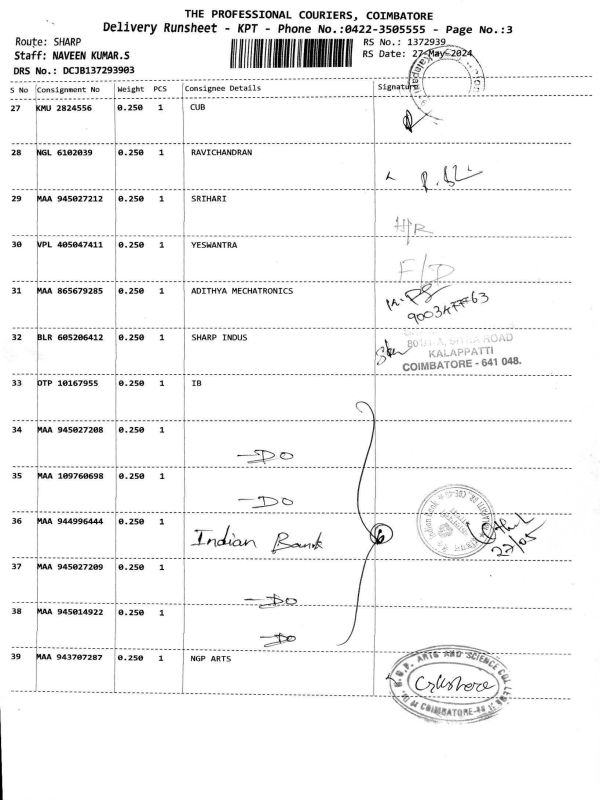 THE PROFESSIONAL COURIERS, COIMBATORE
Delivery Runsheet - KPT - Phone No.:0422-3505555 - Page No.:3
Route: SHARP RS No.: 1372939
Staff: NAVEEN KUMAR.S RS Date: 27-May-2024
DRS No.: DCJB137293903
S No Consignment No Weight PCS Consignee Details Signature
27 KMU 2824556 0.250 1 CUB
28 NGL 6102039 0.250 1 RAVICHANDRAN
29 MAA 945027212 0.250 1 SRIHARI
H/R
30 VPL 405047411 0.250 1 YESWANTRA
F/D
31 MAA 865679285 0.250 1 ADITHYA MECHATRONICS
32 BLR 605206412 0.250 1 SHARP INDUS
ROAD
KALAPPATTI
COIMBATORE - 641 048.
33 OTP 10167955 0.250 1 IB
34 MAA 945027208 0.250 1
-DO
35 MAA 109760698 0.250 1
-DO
36 MAA 944996444 0.250 1 Indian Bank 6
27/05
37 MAA 945027209 0.250 1
-DO
38 MAA 945014922 0.250 1
-DO
39 MAA 943707287 0.250 1 NGP ARTS
ARTS AND SCIENCE COLLEGE
COIMBATORE-48